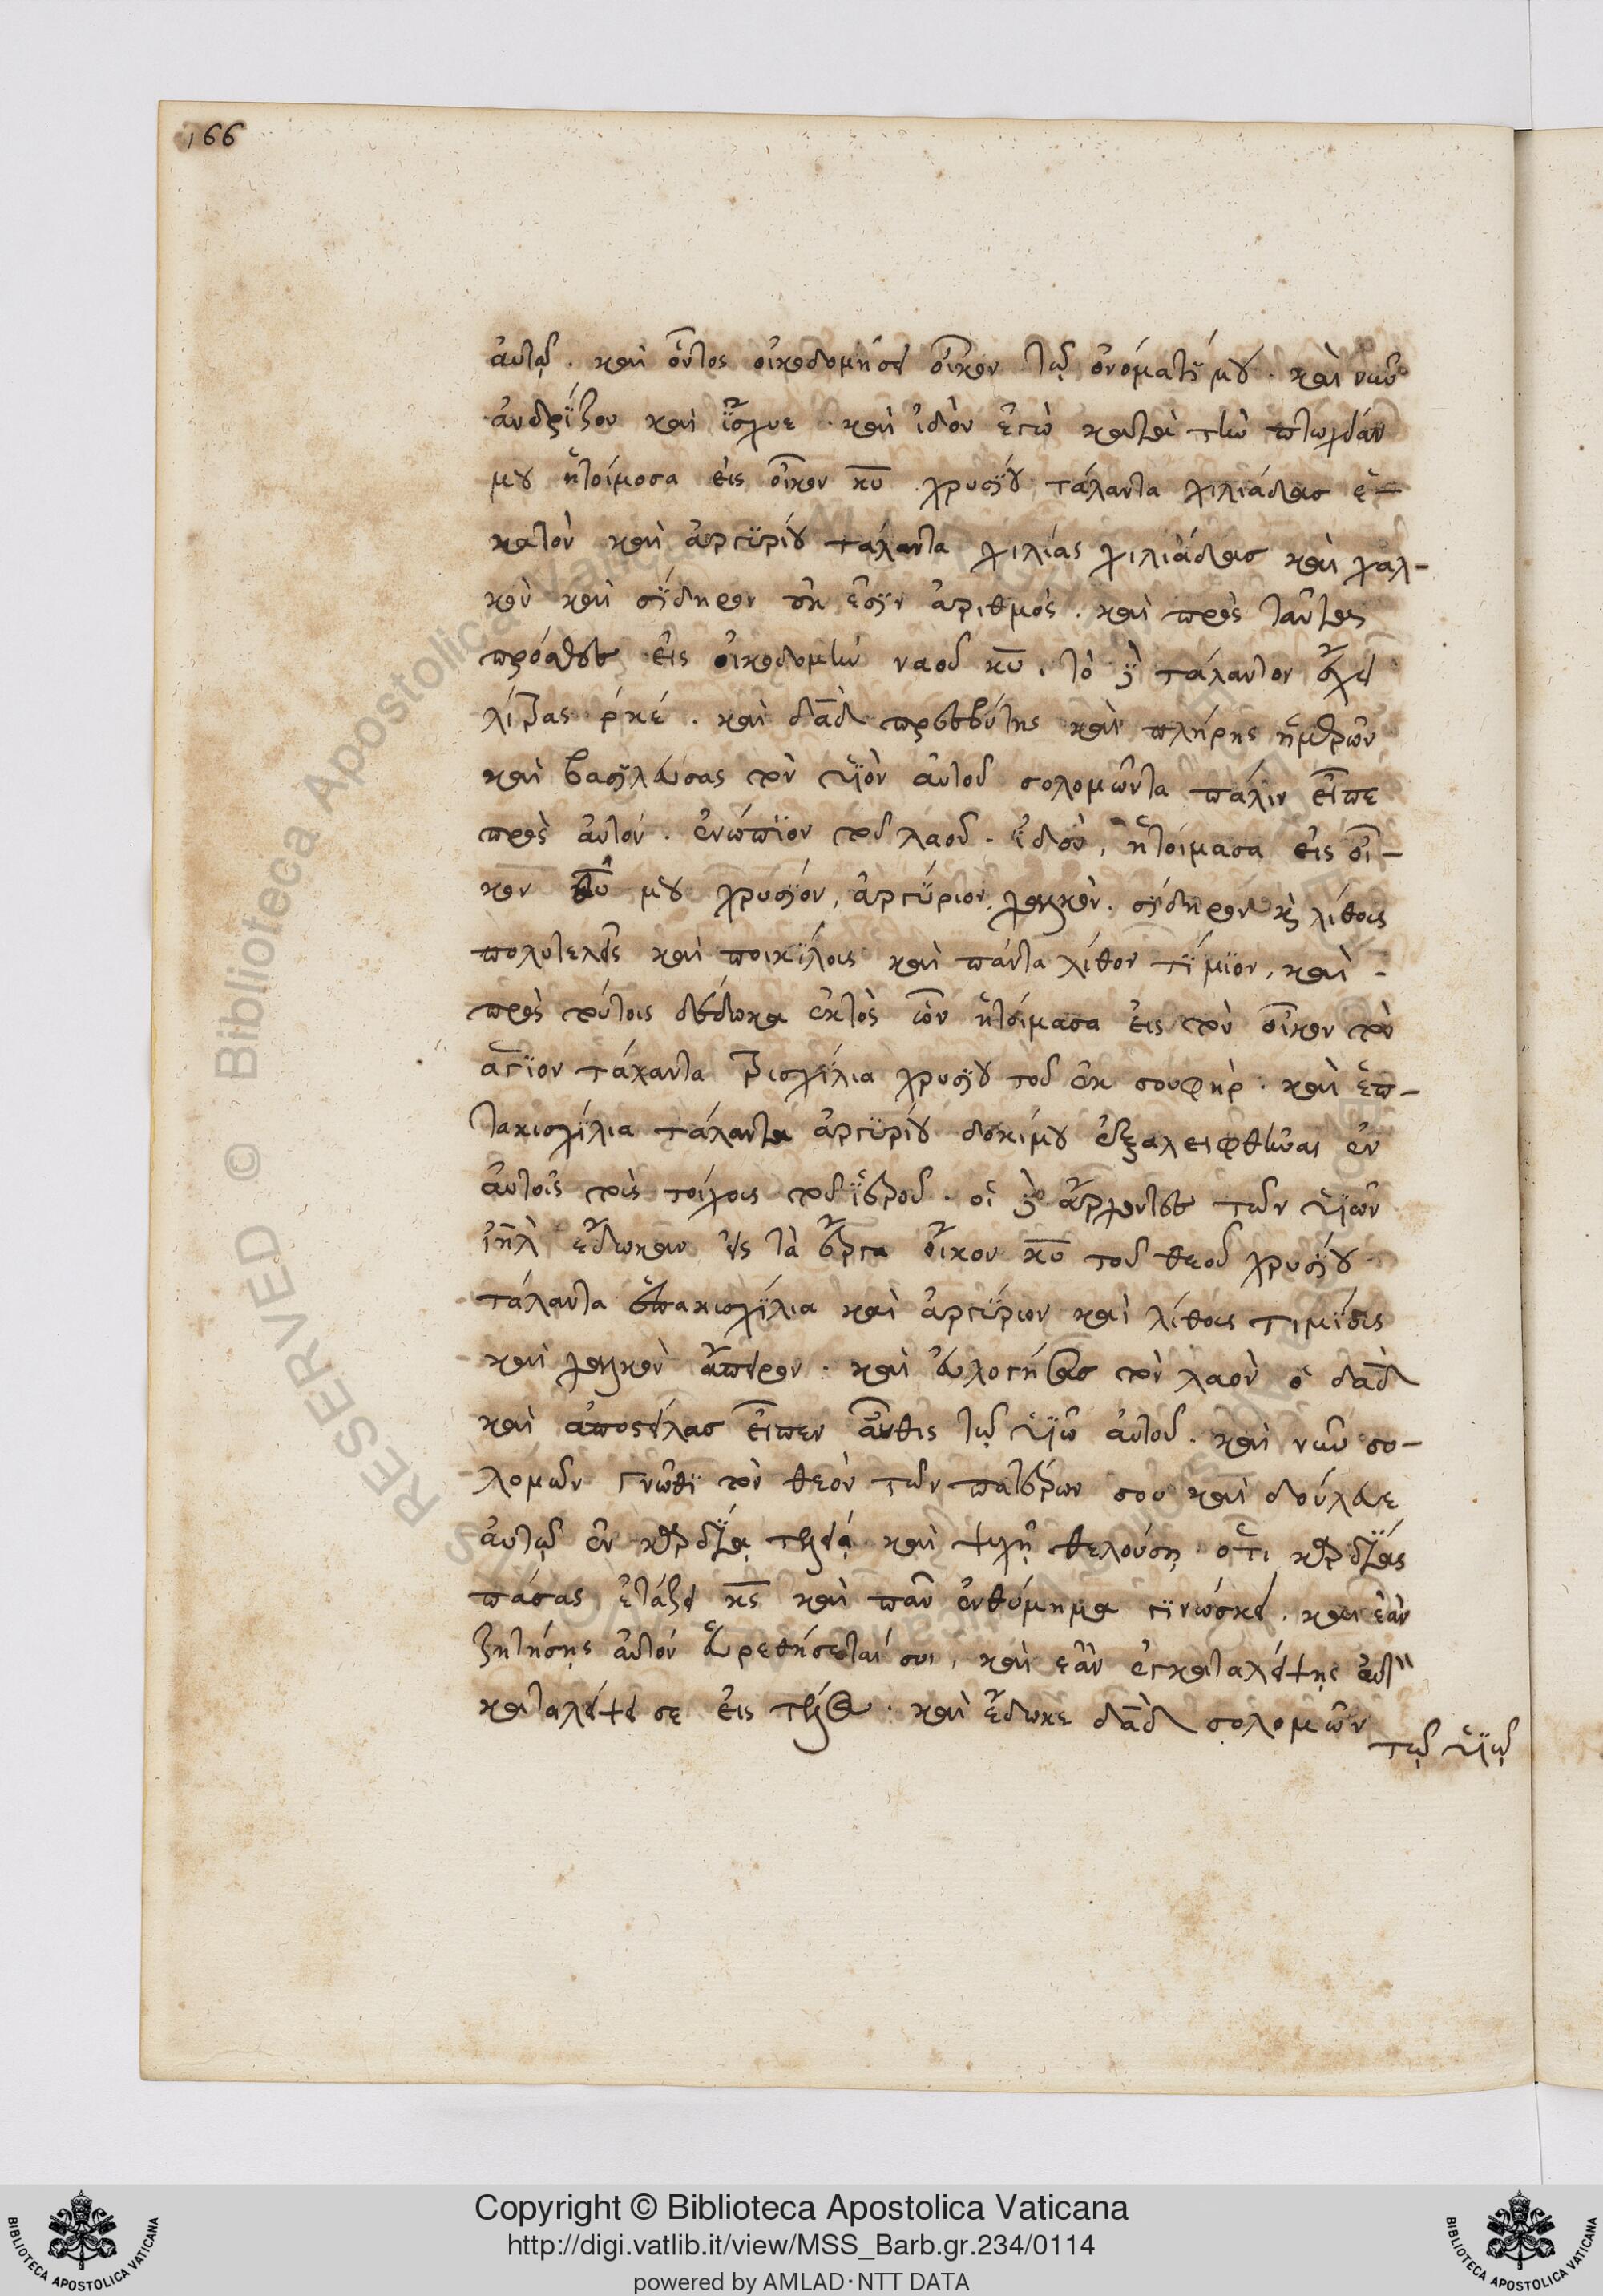 166
αὐτῷ. καὶ οὗτος οἰκοδομήσει οἶκον τῷ ὀνόματί μου. καὶ νῦν
ἀνδρίζου καὶ ἴσχυε. καὶ ἰδοὺ ἐγὼ κατὰ τὴν πτωχείαν
μου ἡτοίμασα εἰς οἶκον κ̅υ̅ χρυσίου τάλαντα χιλιάδας ἑ-
κατὸν καὶ ἀργυρίου τάλαντα χιλίας χιλιάδας καὶ χαλ-
κὸν καὶ σίδηρον οὐκ ἔστιν ἀριθμός. καὶ πρὸς ταῦτα
πρόσθες εἰς οἰκοδομὴν ναοῦ κ̅υ̅. τὸ δὲ τάλαντον ἔχει
λίτρας ρκέ. καὶ δα̅δ πρεσβύτης καὶ πλήρης ἡμερῶν
καὶ βασιλεύσας τὸν υἱὸν αὐτοῦ σολομῶντα πάλιν εἶπε
πρὸς αὐτόν. ἐνώπιον τοῦ λαοῦ. ἰδοὺ, ἡτοίμασα εἰς οἶ-
κον θ̅υ̅ μου χρυσίον, ἀργύριον, χαλκὸν. σίδηρον κ λίθους
πολυτελεῖς καὶ ποικίλους καὶ πάντα λίθον τίμιον, καὶ
πρὸς τούτοις δέδωκα ἐκτὸς ὧν ἡτοίμασα εἰς τὸν οἶκον τὸν
ἅγιον τάλαντα τρισχίλια χρυσίου τοῦ ἐκ σουφὴρ. καὶ ἑπ-
τακισχίλια τάλαντα ἀργυρίου δοκίμου ἐξαλειφθῆναι ἐν
αὐτοῖς τοὺς τοίχους τοῦ ἱεροῦ. οἱ δὲ ἄρχοντες τῶν υἱῶν
ἰη̅λ ἔδωκαν εἰς τὰ ἔργα οἴκου κ̅υ̅ τοῦ θεοῦ χρυσίου
τάλαντα ἑπτακισχίλια καὶ ἀργύριον καὶ λίθους τιμίους
καὶ χαλκὸν ἄπειρον. καὶ εὐλογήσας τὸν λαὸν ὁ δα̅δ
καὶ ἀποστείλας εἶπεν αὖθις τῷ υἱῷ αὐτοῦ. καὶ νῦν σο-
λομὼν γνῶθι τὸν θεὸν τῶν πατέρων σου καὶ δούλευε
αὐτῷ ἐν καρδίᾳ τελείᾳ καὶ ψυχῇ θελούσῃ ὅτι καρδίας
πάσας ἐτάζει κ̅ς̅ καὶ πᾶν ἐνθύμημα γινώσκει. καὶ ἐὰν
ζητήσῃς αὐτὸν εὑρεθήσεταί σοι, καὶ ἐὰν ἐγκαταλείψῃς αὐτ
καταλείψει σε εἰς τέλος. καὶ ἔδωκε δα̅δ σολομῶν
τῷ υἱῷ
RESERVED © Biblioteca Apostolica Vaticana
Copyright © Biblioteca Apostolica Vaticana
http://digi.vatlib.it/view/MSS_Barb.gr.234/0114
powered by AMLAD·NTT DATA
BIBLIOTECA APOSTOLICA VATICANA
BIBLIOTECA APOSTOLICA VATICANA